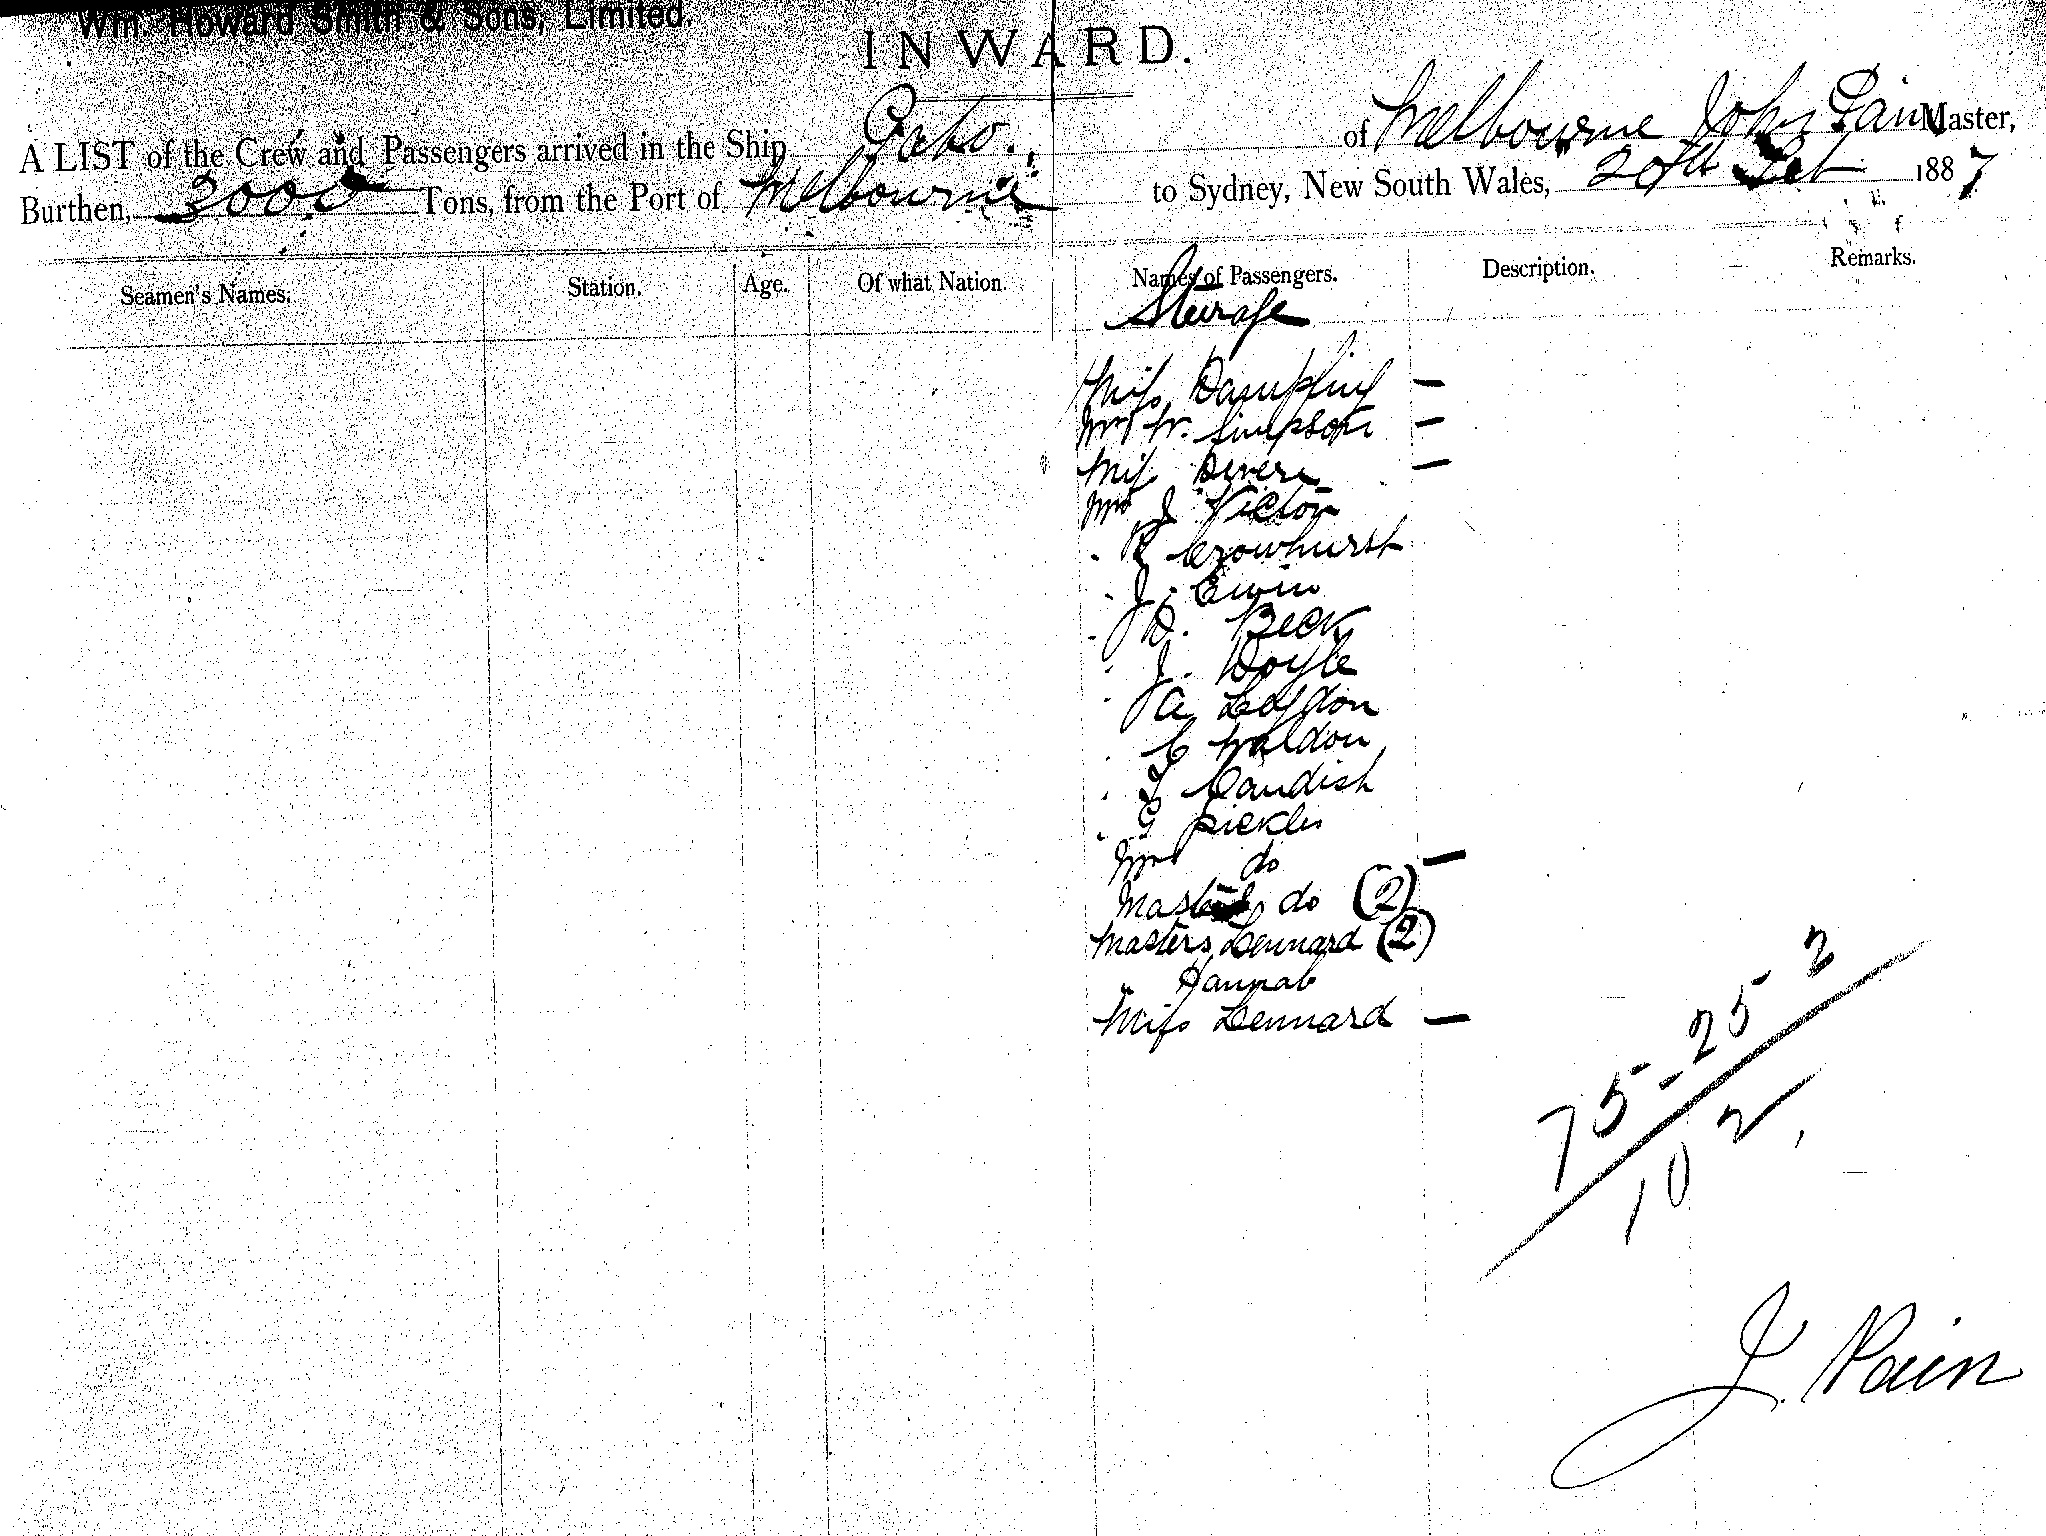 Wm. Howard Smith & Sons, Limited.
INWARD.
A LIST of the Crew and Passengers arrived in the Ship Gabo. of Melbourne John Pain Master,
Burthen, 2000 Tons, from the Port of Melbourne to Sydney, New South Wales, 20th Oct 1887
Seamen's Names. Station. Age. Of what Nation. Names of Passengers. Description. Remarks.
Steerage
Miss Dampling —
Mrs W. Simpson —
Miss Devere —
Mr J Victon
" R Crowhurst
" J. Ewin
" D. Beck
" J. Doyle
" A
" C Waldon
" T Candish
" G Pickles
Mrs do —
Masters do (2)
Masters Lennard (2)
" Hannah
Miss Lennard —
75 - 25 - 2
102
J. Pain